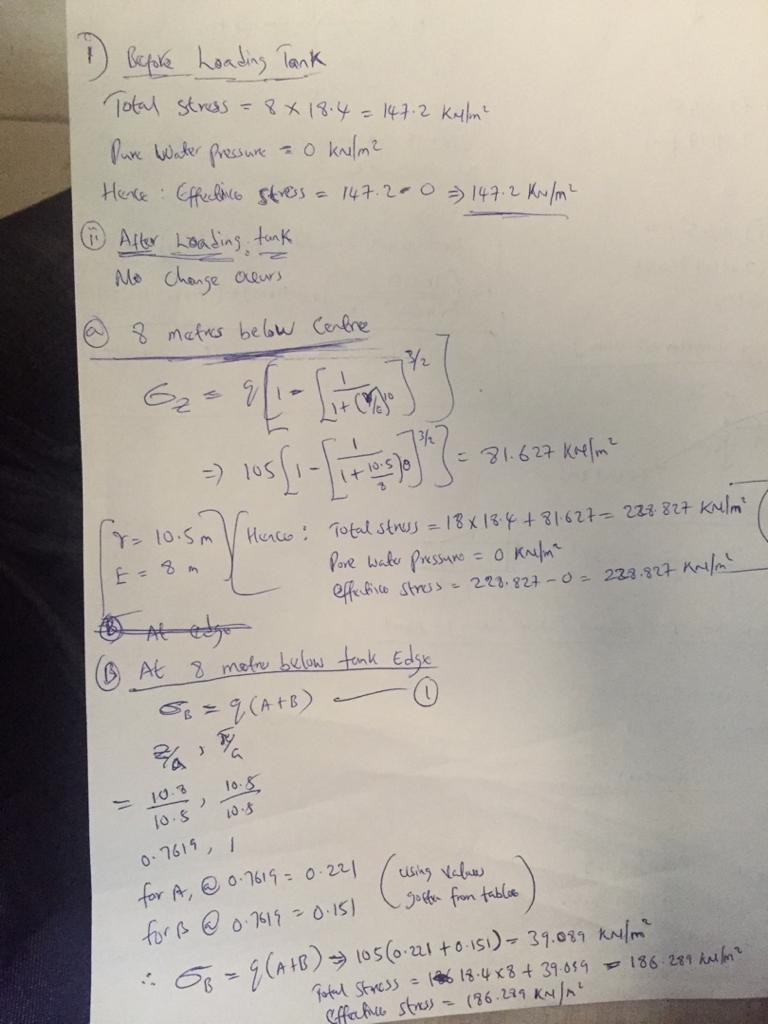 i) Before Loading Tank
Total stress = 8 × 18.4 = 147.2 KN/m²
Pure Water pressure = 0 KN/m²
Hence : Effective stress = 147.2 - 0 ⇒ 147.2 KN/m²
ii) After Loading tank
No Change occurs
(a) 8 metres below Centre
σz = q[1 - [1/(1+(r/z)²)]^3/2]
⇒ 105[1 - [1/(1+(10.5/8)²)]^3/2] = 81.627 KN/m²
r = 10.5 m
Z = 8 m
Hence : Total stress = 18 × 18.4 + 81.627 = 228.827 KN/m²
Pore water Pressure = 0 KN/m²
effective stress = 228.827 - 0 = 228.827 KN/m²
At edge
(B) At 8 metre below tank Edge
σB = q(A+B) (1)
z/a , r/a
= 10.8/10.5 , 10.5/10.5
0.7619 , 1
for A, @ 0.7619 = 0.221
for B @ 0.7619 = 0.151
(using values gotten from tables)
∴ σB = q(A+B) ⇒ 105(0.221 + 0.151) = 39.089 KN/m²
Total Stress = 18.4×8 + 39.089 = 186.289 KN/m²
Effective stress = 186.289 KN/m²